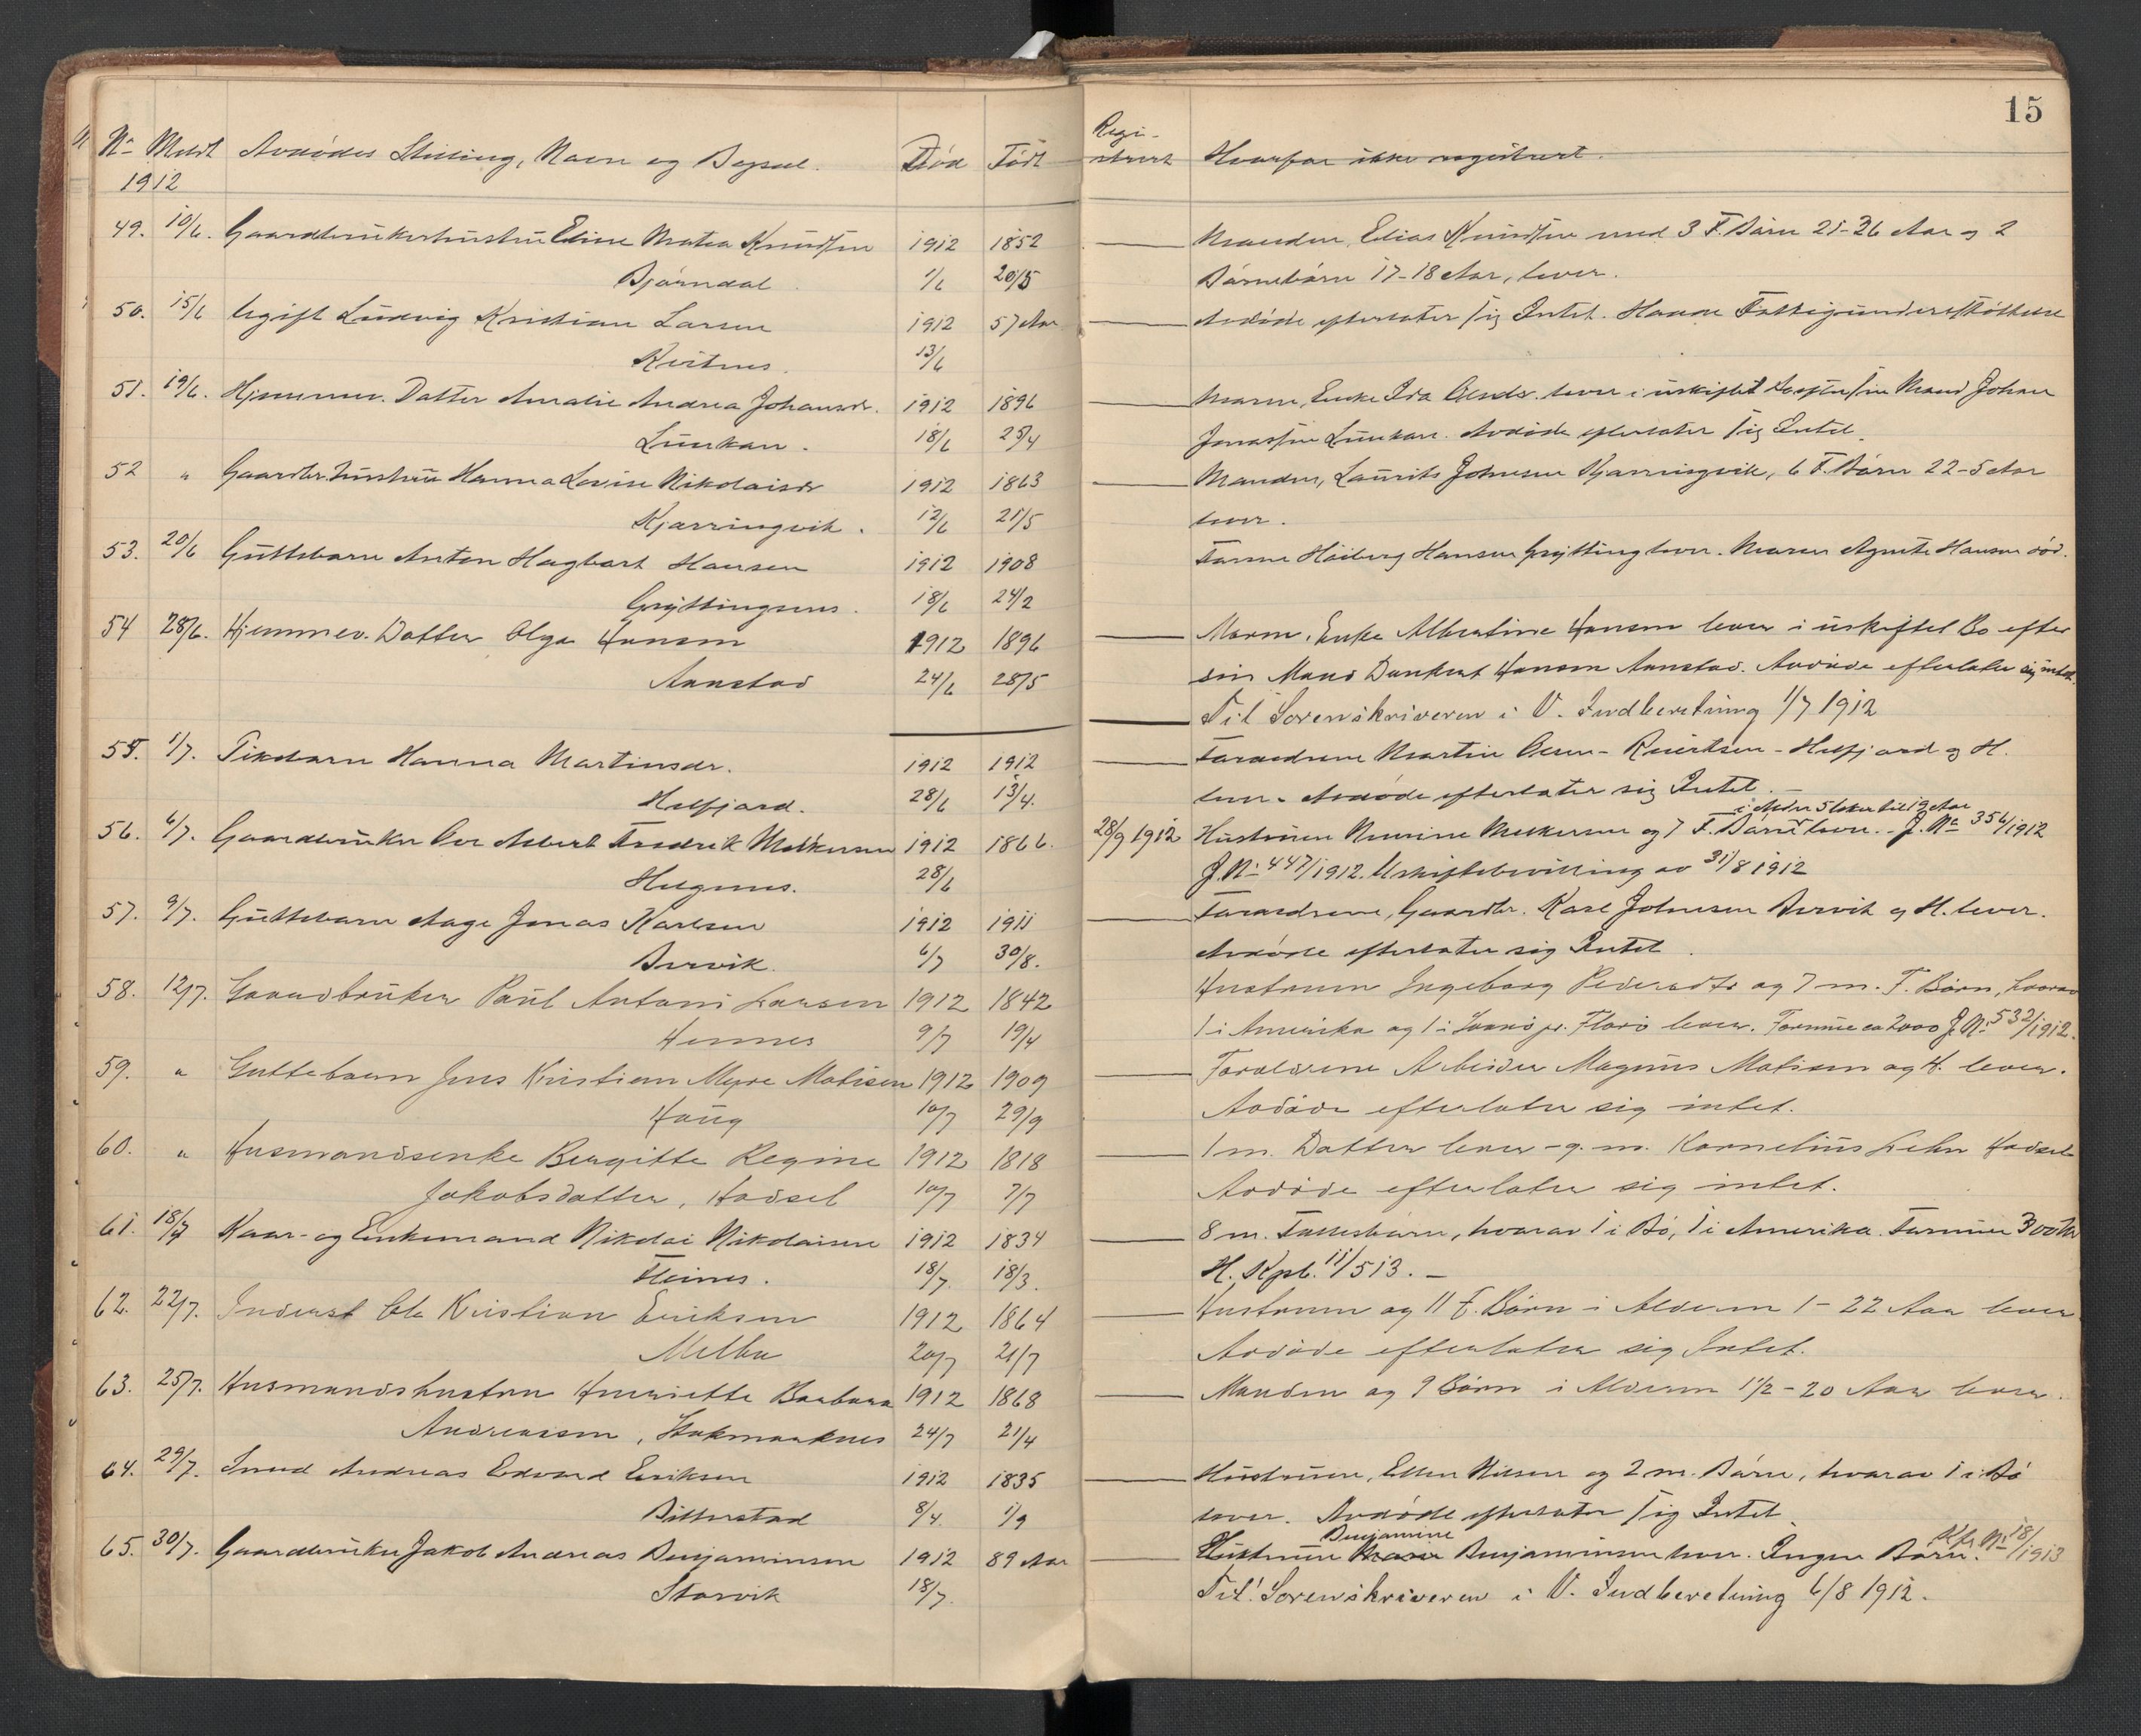 15
No Meldt Avdødes Stilling, Navn og Bopæl. Død Født Regi-
strert Hvorfor ikke registrert.
1912
49. 10/6. Gaardbrukerhustru Eline Matea Knudsen 1912 1852 Manden, Elias Knudsen med 3 F. Børn 21-26 Aar og 2
Bjørndal 1/6 20/5 Børnebørn 17-18 Aar, lever.
50. 15/6 Ugift Ludvig Kristian Larsen 1912 57 Aar Avdøde efterlater sig Intet. Havde Fattigunderstøttelse
Kvitnes. 13/6
51. 19/6. Hjemmev. Datter Amalie Andrea Johansdr. 1912 1896 Moren, Enke Ida Olsdr. lever i uskiftet Bo efter sin Mand Johan
Lunkan. 18/6 25/4 Jonassen Lunkan. Avdøde efterlater sig Intet.
52 " Gaardbr.hustru Hanna Lovise Nikolaisdr 1912 1863 Manden, Laurits Johnsen Kjærringvik, 6 F. Børn 22-5 Aar
Kjærringvik. 12/6 21/5 lever.
53. 20/6 Guttebarn Anton Hagbart Hansen 1912 1908 Faren Høiberg Hansen Grytting lever. Moren Agnete Hansen død.
Gryttingsens. 18/6 24/2
54 28/6. Hjemmev. Datter Olga Hansen 1912 1896 Moren, Enke Albertine Hansen lever i uskiftet Bo efter
Annstad 24/6 28/5 sin Mand Dankert Hansen Annstad. Avdøde efterlater sig intet.
Til Sorenskriveren i V. Indberetning 1/7 1912
55. 1/7. Pikebarn Hanna Martinsdr. 1912 1912 Forældrene Martin Olsen- -Helfjord og H.
Helfjord. 28/6 13/4. lever. Avdøde efterlater sig Intet.
i Alder 5 Uker til 19 Aar
56. 6/7. Gaardbruker Ole Albert Fredrik Meløkersen 1912 1866. 28/9 1912 Hustruen og 7 F. Børn lever. J. No 356/1912
Haugnes. 28/6 J. No 447/1912. Uskiftebevilling av 31/8 1912
57. 9/7. Guttebarn Aage Jonas Karlsen 1912 1911 Forældrene, Gaardbr. Karl Johnsen Burvik og H. lever.
Burvik. 6/7 30/8. Avdøde efterlater sig Intet.
58. 12/7. Gaardbruker Paul Antoni Larsen 1912 1842 Hustruen Ingeborg Pedersdtr og 7 m. F. Børn, hvorav
Hennes 9/7 19/4 1 i Amerika og 1 i pr. Florø lever. Formue ca 2000 J. No 532/1912.
59. " Guttebarn Jens Kristian Myre Matisen 1912 1909 Forældrene Arbeider Magnus Matisen og H. lever.
Haug 10/7 29/9 Avdøde efterlater sig intet.
60. " Husmandsenke Bergitte Regine 1912 1818 1 m. Datter lever - g. m. Kornelius Lehn Hadsel
Jakobsdatter, Hadsel 10/7 7/7 Avdøde efterlater sig intet.
61. 18/7 Kaar- og Enkemand Nikolai Nikolaisen 1912 1834 8 m. Fællesbørn, hvorav 1 i Bø, 1 i Amerika. Formue 300 Kr
Steines. 18/7. 18/3. H. Kpl. 11/513.
62. 22/7. Inderst Ole Kristian Eriksen 1912 1864 Hustruen og 11 F. Børn i Alderen 1 - 22 Aar lever
Melbu 20/7 21/7 Avdøde efterlater sig Intet.
63. 25/7. Husmandshustru Henriette Barbara 1912 1868 Manden og 9 Børn i Alderen 1 1/2 - 20 Aar lever.
Andreassen, Stokmarknes 24/7 21/4
64. 29/7. Smed Andreas Edvard Eriksen 1912 1835 Hustruen, Ellen Nilsen og 2 m. Børn, hvorav 1 i Bø
Bitterstad 8/4 1/9 lever. Avdøde efterlater sig Intet
Benjamine Kpr. No 18/1913
65. 30/7. Gaardbruker Jakob Andreas Benjaminsen 1912 89 Aar Hustruen Maren Benjaminsen lever. Ingen Børn.
Storvik 18/7. Til Sorenskriveren i V. Indberetning 6/8 1912.